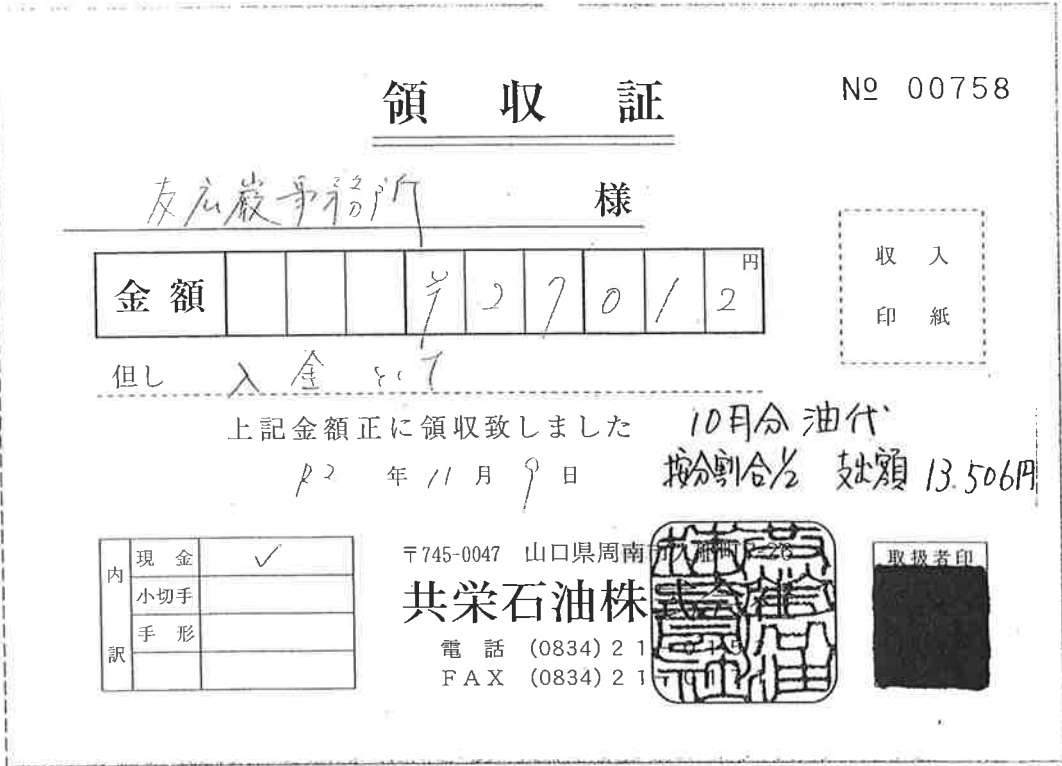 領収証
№ 00758
友広巌事務所 様
収入
印紙
金額 ¥27012円
但し 入金として
上記金額正に領収致しました
10月分 油代
R2年11月9日
按分割合1/2 支出額 13.506円
内訳
現金 ✓
小切手
手形
〒745-0047 山口県周南
共栄石油株式会社
電話 (0834) 21
FAX (0834) 21
取扱者印